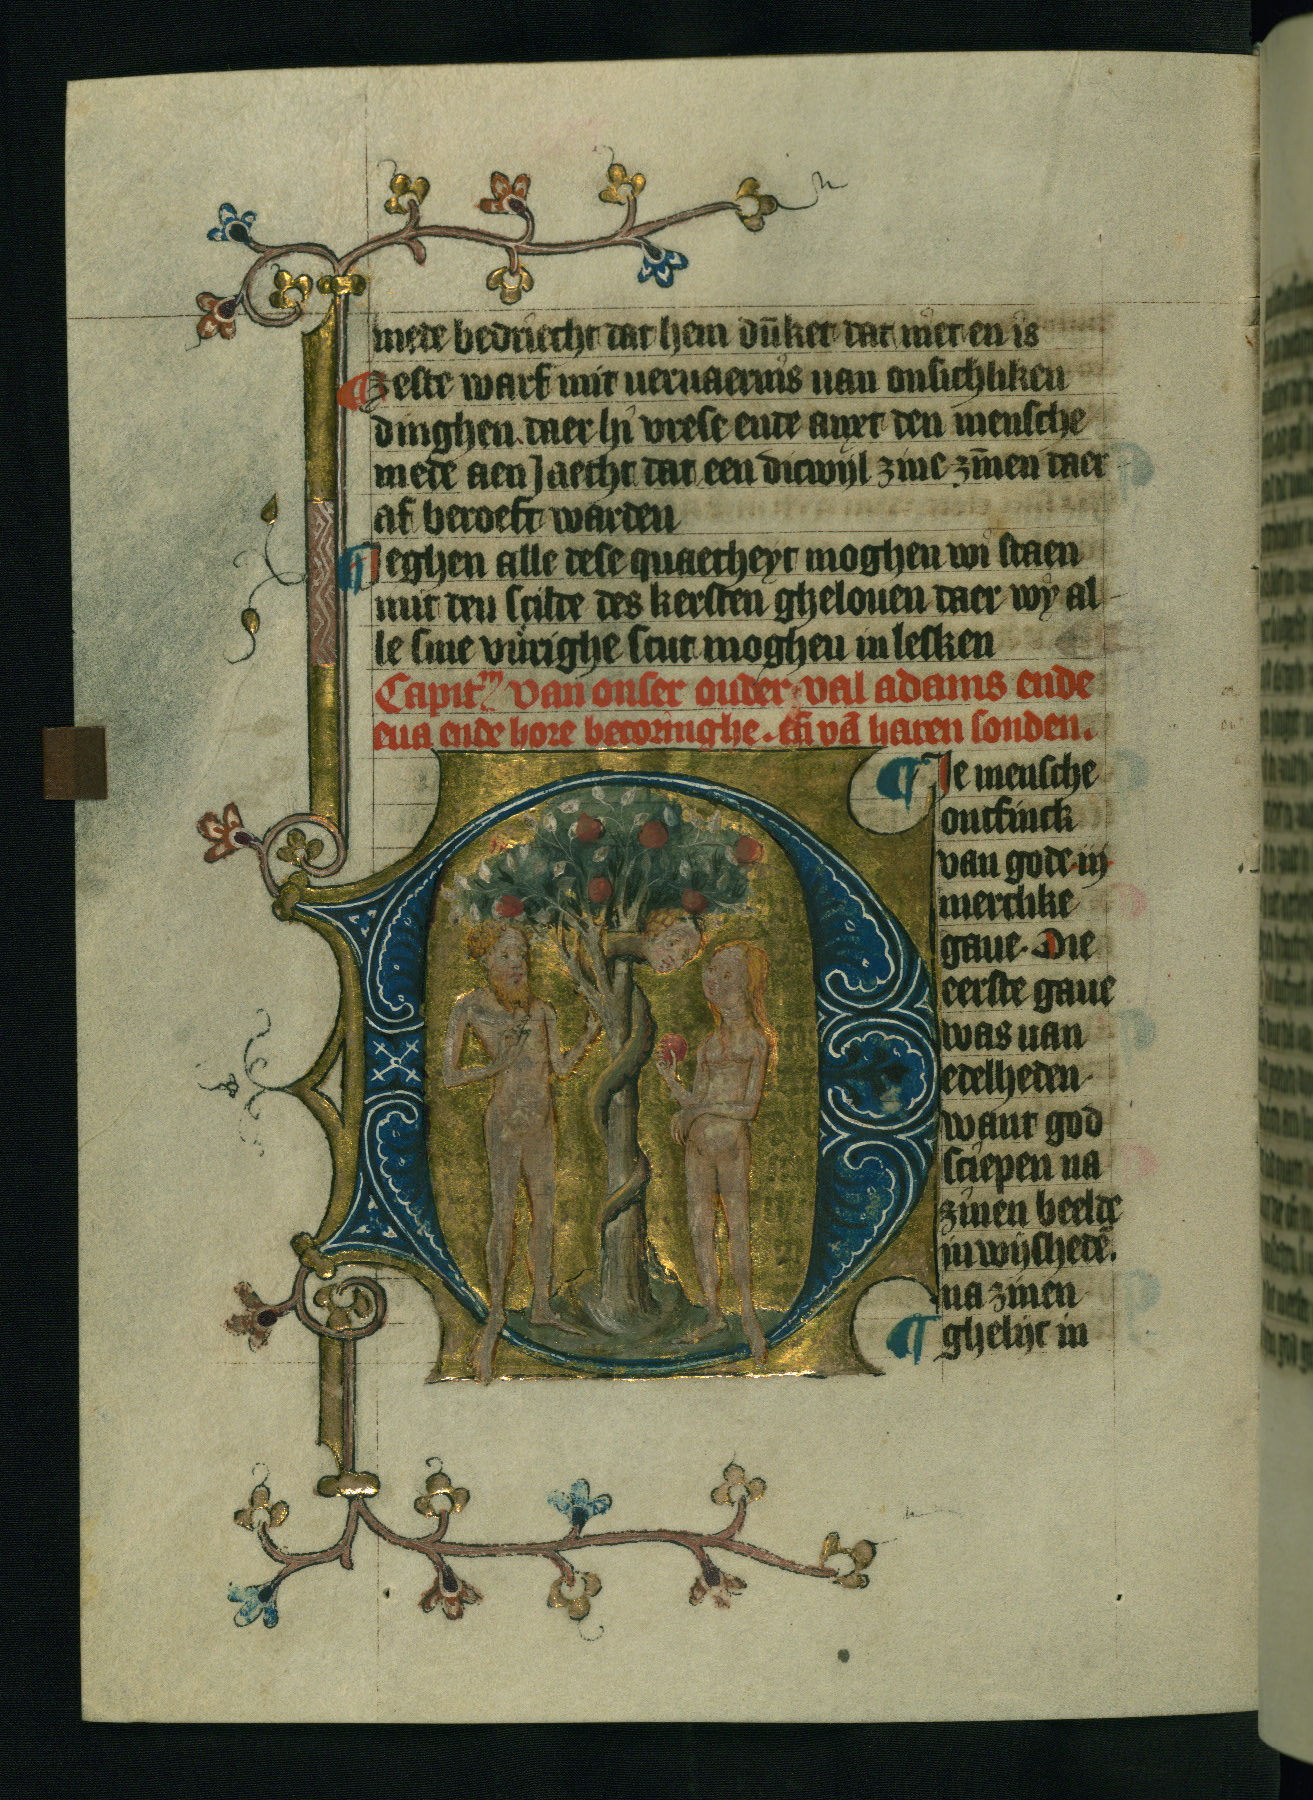 mede bedriecht dat hem dūket dat niet en is
zeste warf mit veruaernis uan onsichliken
dinghen. daer hi vrese ende anxt den mensche
mede aen Jaecht dat een dicwijl zine zīnen daer
af beroeft warden
Jeghen alle dese quaetheyt moghen wi staen
mit den scilde des kersten ghelouen daer wy al
le sine vurighe scut moghen in lesken
Capitm van onser ouder val adams ende
eua ende hore becoringhe. eñ vā haren sonden.
Je mensche
ontfinck
van gode in
merclike
gaue. Die
eerste gaue
was uan
edelheden
want god
sciepen na
zinen beelde
in wijshedē.
na zinen
ghelijc in